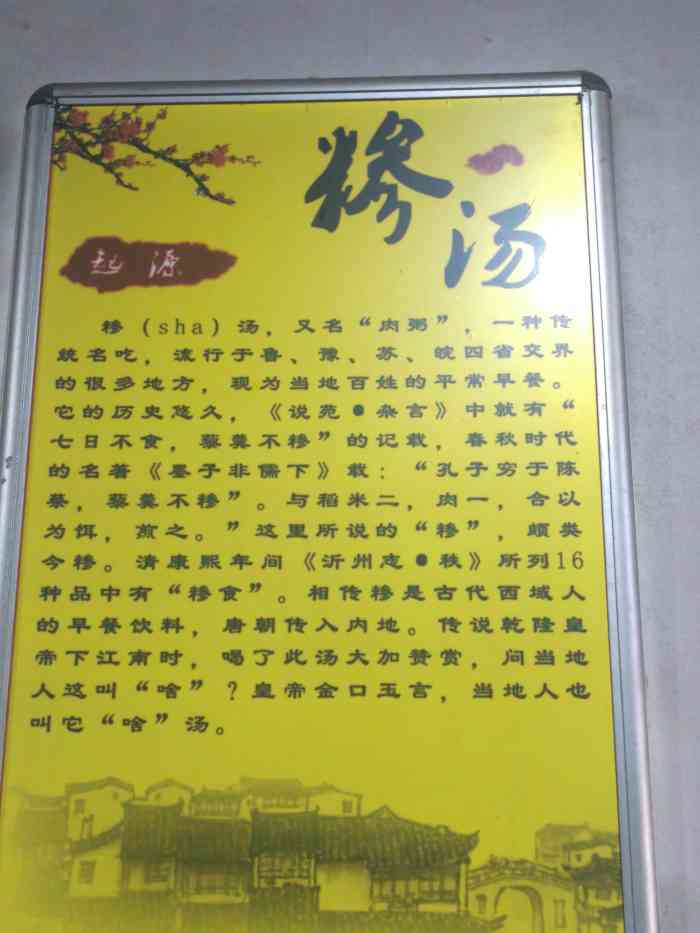 糁
汤
起源
糁（sha）汤，又名“肉粥”，一种传
统名吃，流行于鲁、豫、苏、皖四省交界
的很多地方，现为当地百姓的平常早餐。
它的历史悠久，《说苑•杂言》中就有“
七日不食，藜羹不糁”的记载，春秋时代
的名著《墨子非儒下》载：“孔子穷于陈
蔡，藜羹不糁”。与稻米二，肉一，合以
为饵，煎之。”这里所说的“糁”，颇类
今糁。清康熙年间《沂州志•秩》所列16
种品中有“糁食”。相传糁是古代西域人
的早餐饮料，唐朝传入内地。传说乾隆皇
帝下江南时，喝了此汤大加赞赏，问当地
人这叫“啥”？皇帝金口玉言，当地人也
叫它“啥”汤。